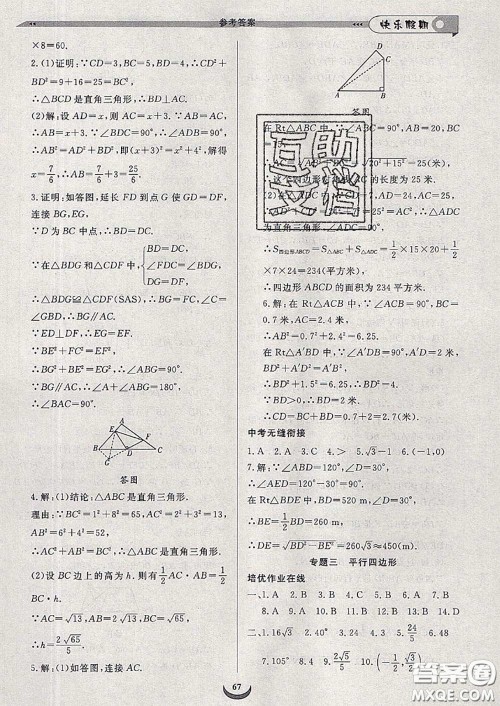 参考答案
快乐假期
×8=60.
2.(1)证明:∵CD=3,BC=5,BD=4,∴CD²+
BD²=9+16=25=BC²,
∴△BCD是直角三角形,∴BD⊥AC.
(2)解,设AD=x,则AC=x+3.∵AB=AC,
∴AB=x+3.∵∠BDC=90°,∴∠ADB=90°,
∴AB²=AD²+BD²,即(x+3)²=x²+4²,解得
x=7/6,∴AB=7/6+3=25/6.
3.证明:如答图,延长FD到点G使GD=DF,
连接BG,EG,
∵D为BC中点,∴BD=DC,
BD=DC,
∵在△BDG和△CDF中,∠FDC=∠BDG,
DG=DF,
∴△BDG≌△CDF(SAS),∴BG=CF,∠C=
∠GBD,∴BG∥AC.
∵ED⊥DF,∴EG=EF.
∵BE²+FC²=EF²,
∴BE²+BG²=EG²,∴∠EBG=90°.
∵BG∥AC,∴∠A+∠ABG=180°,
∴∠A=90°.
A
E
F
B
D
C
G
答图
4.解:(1)结论:△ABC是直角三角形.
理由:∵BC²=1²+8²=65,AC²=2²+3²=13,
AB²=6²+4²=52,
∴AC²+AB²=BC²,∴△ABC是直角三角形.
(2)设BC边上的高为h.则有1/2AC·AB=1/2
BC·h,
∵AC=√13,AB=2√13,BC=√65,
∴h=2√65/5.
5.解:(1)如答图,连接AC.
D
C
A
B
答图
在Rt△ABC中,∵∠ABC=90°,AB=20,BC
=√20²+15²=25(米),
的长度为25米.
为直角三角形,
∴S四边形ABCD=S△ABC+S△ADC=1/2×15×20+1/2
×7×24=234(平方米),
∴四边形ABCD的面积为234平方米.
6.解:在Rt△ABC中,∵∠ACB=90°,BC=
0.7米,AC=2.4米,
∴AB²=0.7²+2.4²=6.25.
在Rt△A′BD中,∵∠A′DB=90°,A′D=2米,
BD²+A′D²=A′B²,
∴BD²+2²=6.25,
∴BD²=2.25.∵BD>0,∴BD=1.5米,
∴CD=BC+BD=0.7+1.5=2.2(米).
中考无缝衔接
1.A 2.C 3.C 4.> 5.√3-1 6.(-1,0)
7.解:∵∠ABD=120°,∠D=30°,
∴∠AED=120°-30°=90°,
在Rt△BDE中,BD=520 m,∠D=30°,
∴BE=1/2BD=260 m,
∴DE=√BD²-BE²=260√3≈450(m).
专题三 平行四边形
培优作业在线
一、1.A 2.B 3.C 4.D 5.C 6.C 7.A 8.B
9.D 10.C 11.D 12.C 13.A 14.D
二、1.16√3 2.3 3.4 4.24/5 5.2 6.48
7.105° 8.5 9.2√5/5 10.(-1/2,√3/2)
67
答案圈
MXQE.COM